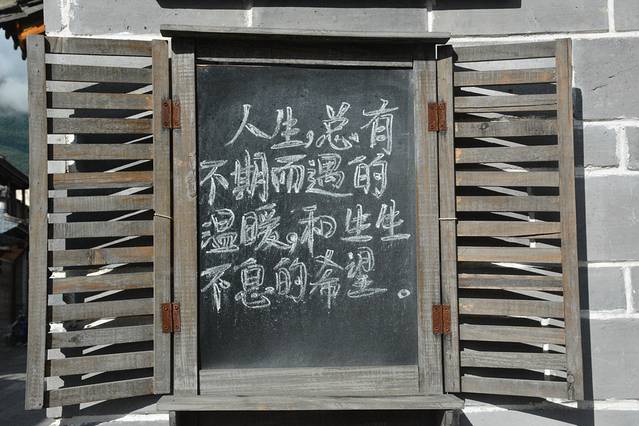 人生，总有
不期而遇的
温暖，和生生
不息的希望。